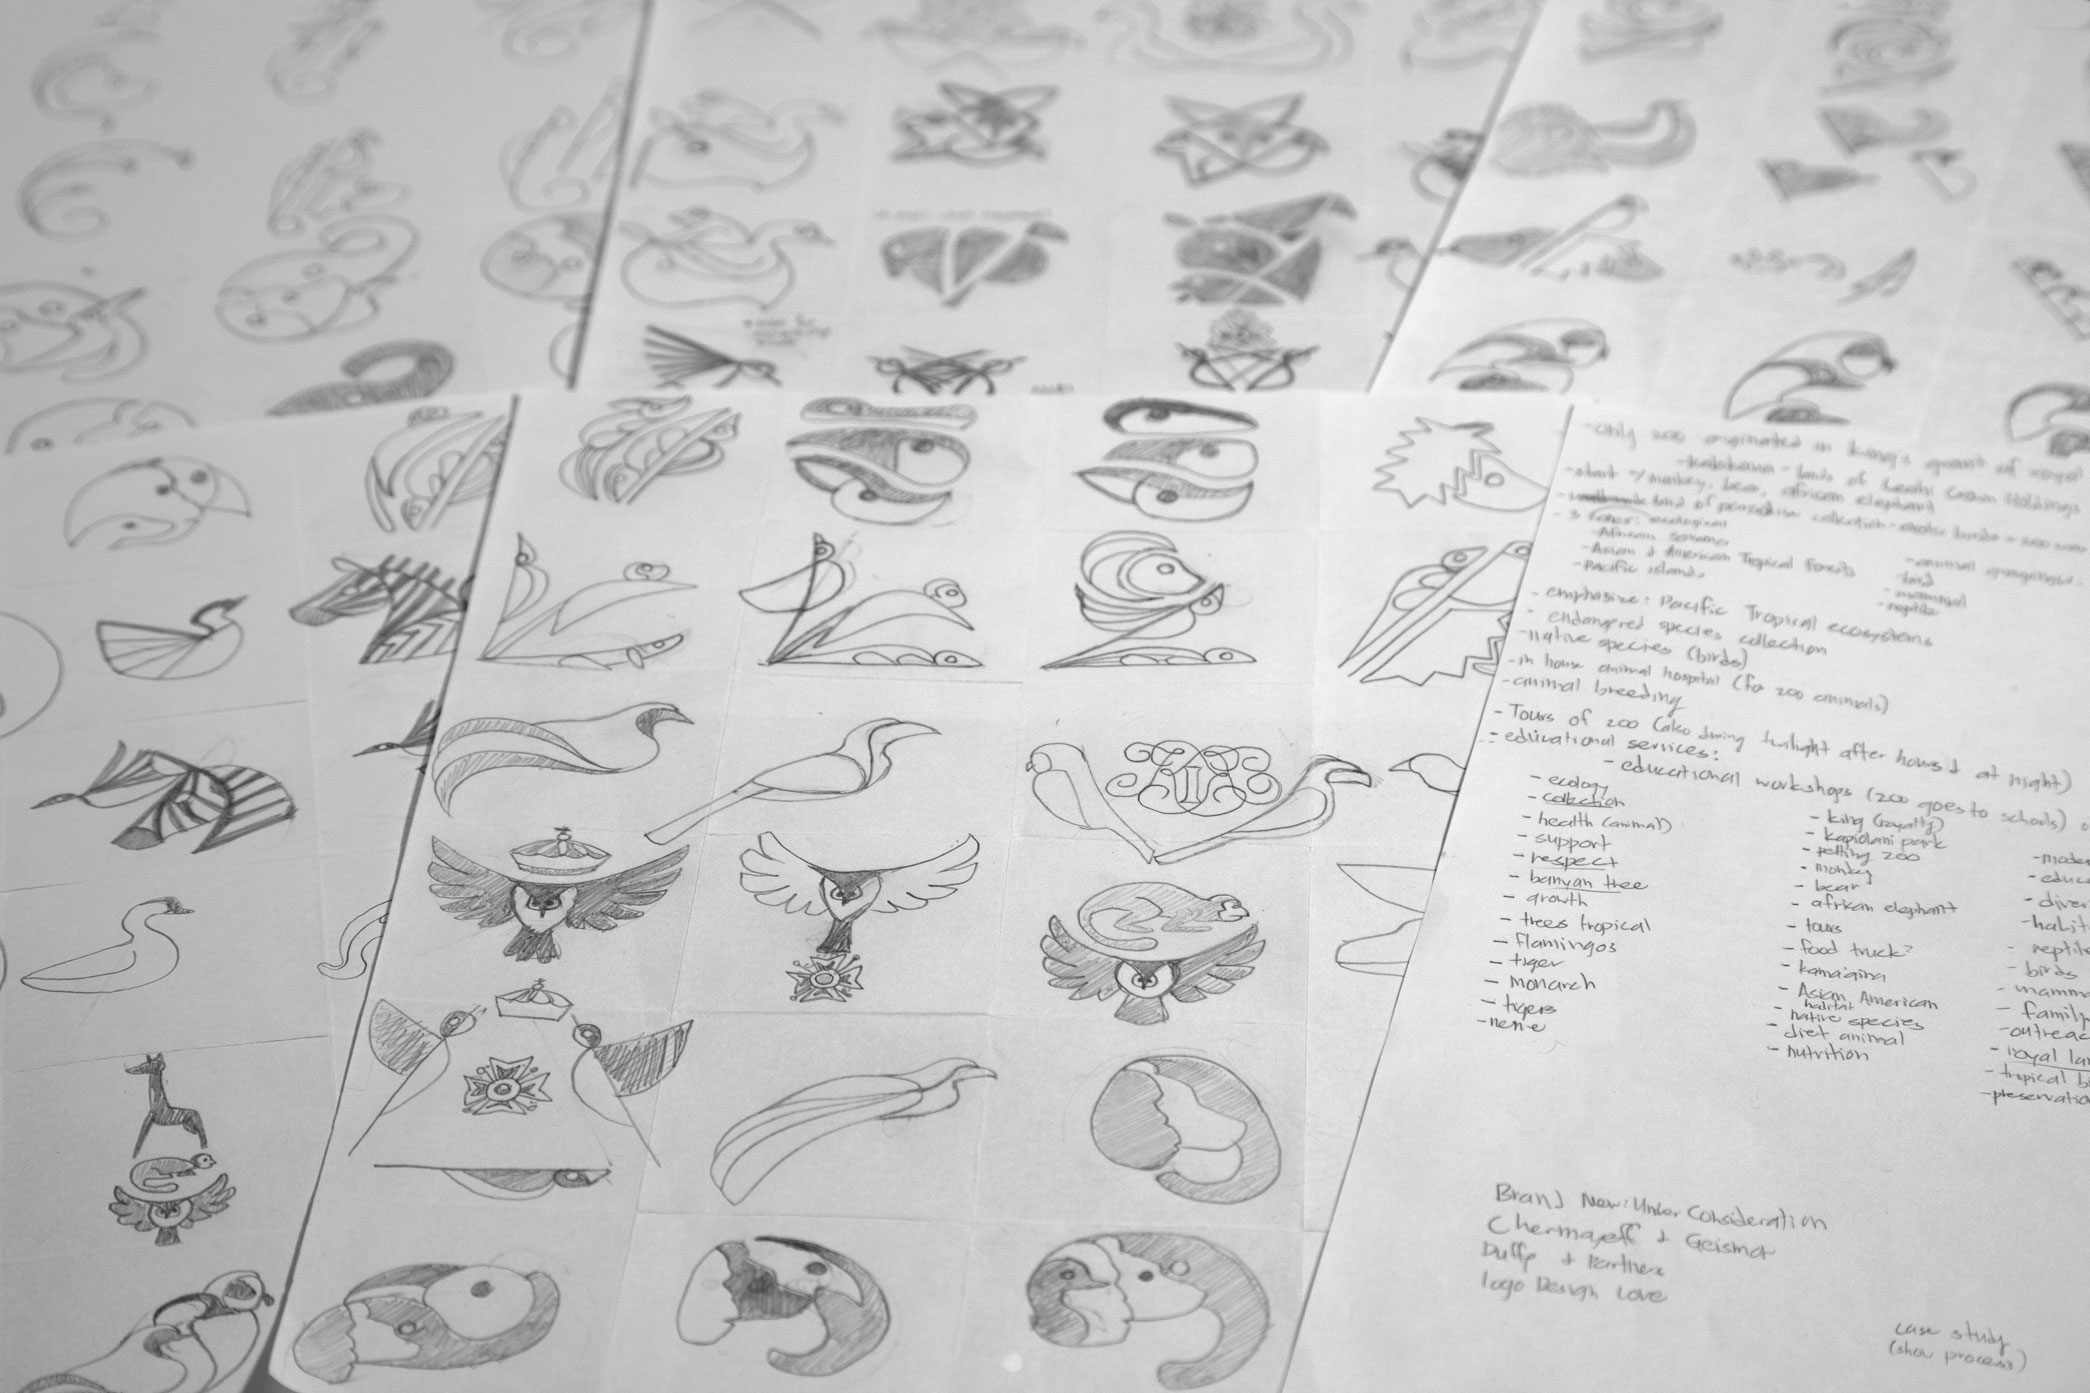 -only zoo originated in king's grant of royal
-kalakaua - lands of Leahi Crown Holdings
-start w/ monkey, bear, african elephant
bird of paradise collection - exotic birds
-African savanna
-Asian & American Tropical Forests
-Pacific islands
-bird
-mammal
-reptile
- emphasize: Pacific Tropical ecosystems
- endangered species collection
-native species (birds)
-in house animal hospital (for zoo animals)
-animal breeding
- Tours of zoo (also during twilight after hours & at night)
- educational services:
- educational workshops (zoo goes to schools)
- ecology
- collection
- health (animal)
- support
- respect
- banyan tree
- growth
- trees tropical
- flamingos
- tiger
- monarch
- tigers
-nene
- king (royalty)
- kapiolani park
- petting zoo
- monkey
- bear
- african elephant
- tours
- food truck?
- kama'aina
- Asian American
habitat
- native species
- diet animal
- nutrition
- diver
-habit
- reptile
- birds
- mamma
- family
-outreac
- royal lan
- tropical b
-preservatio
Brand New: Under Consideration
Chermayeff & Geismar
Duffy & Partners
logo Design Love
case study
(show process)